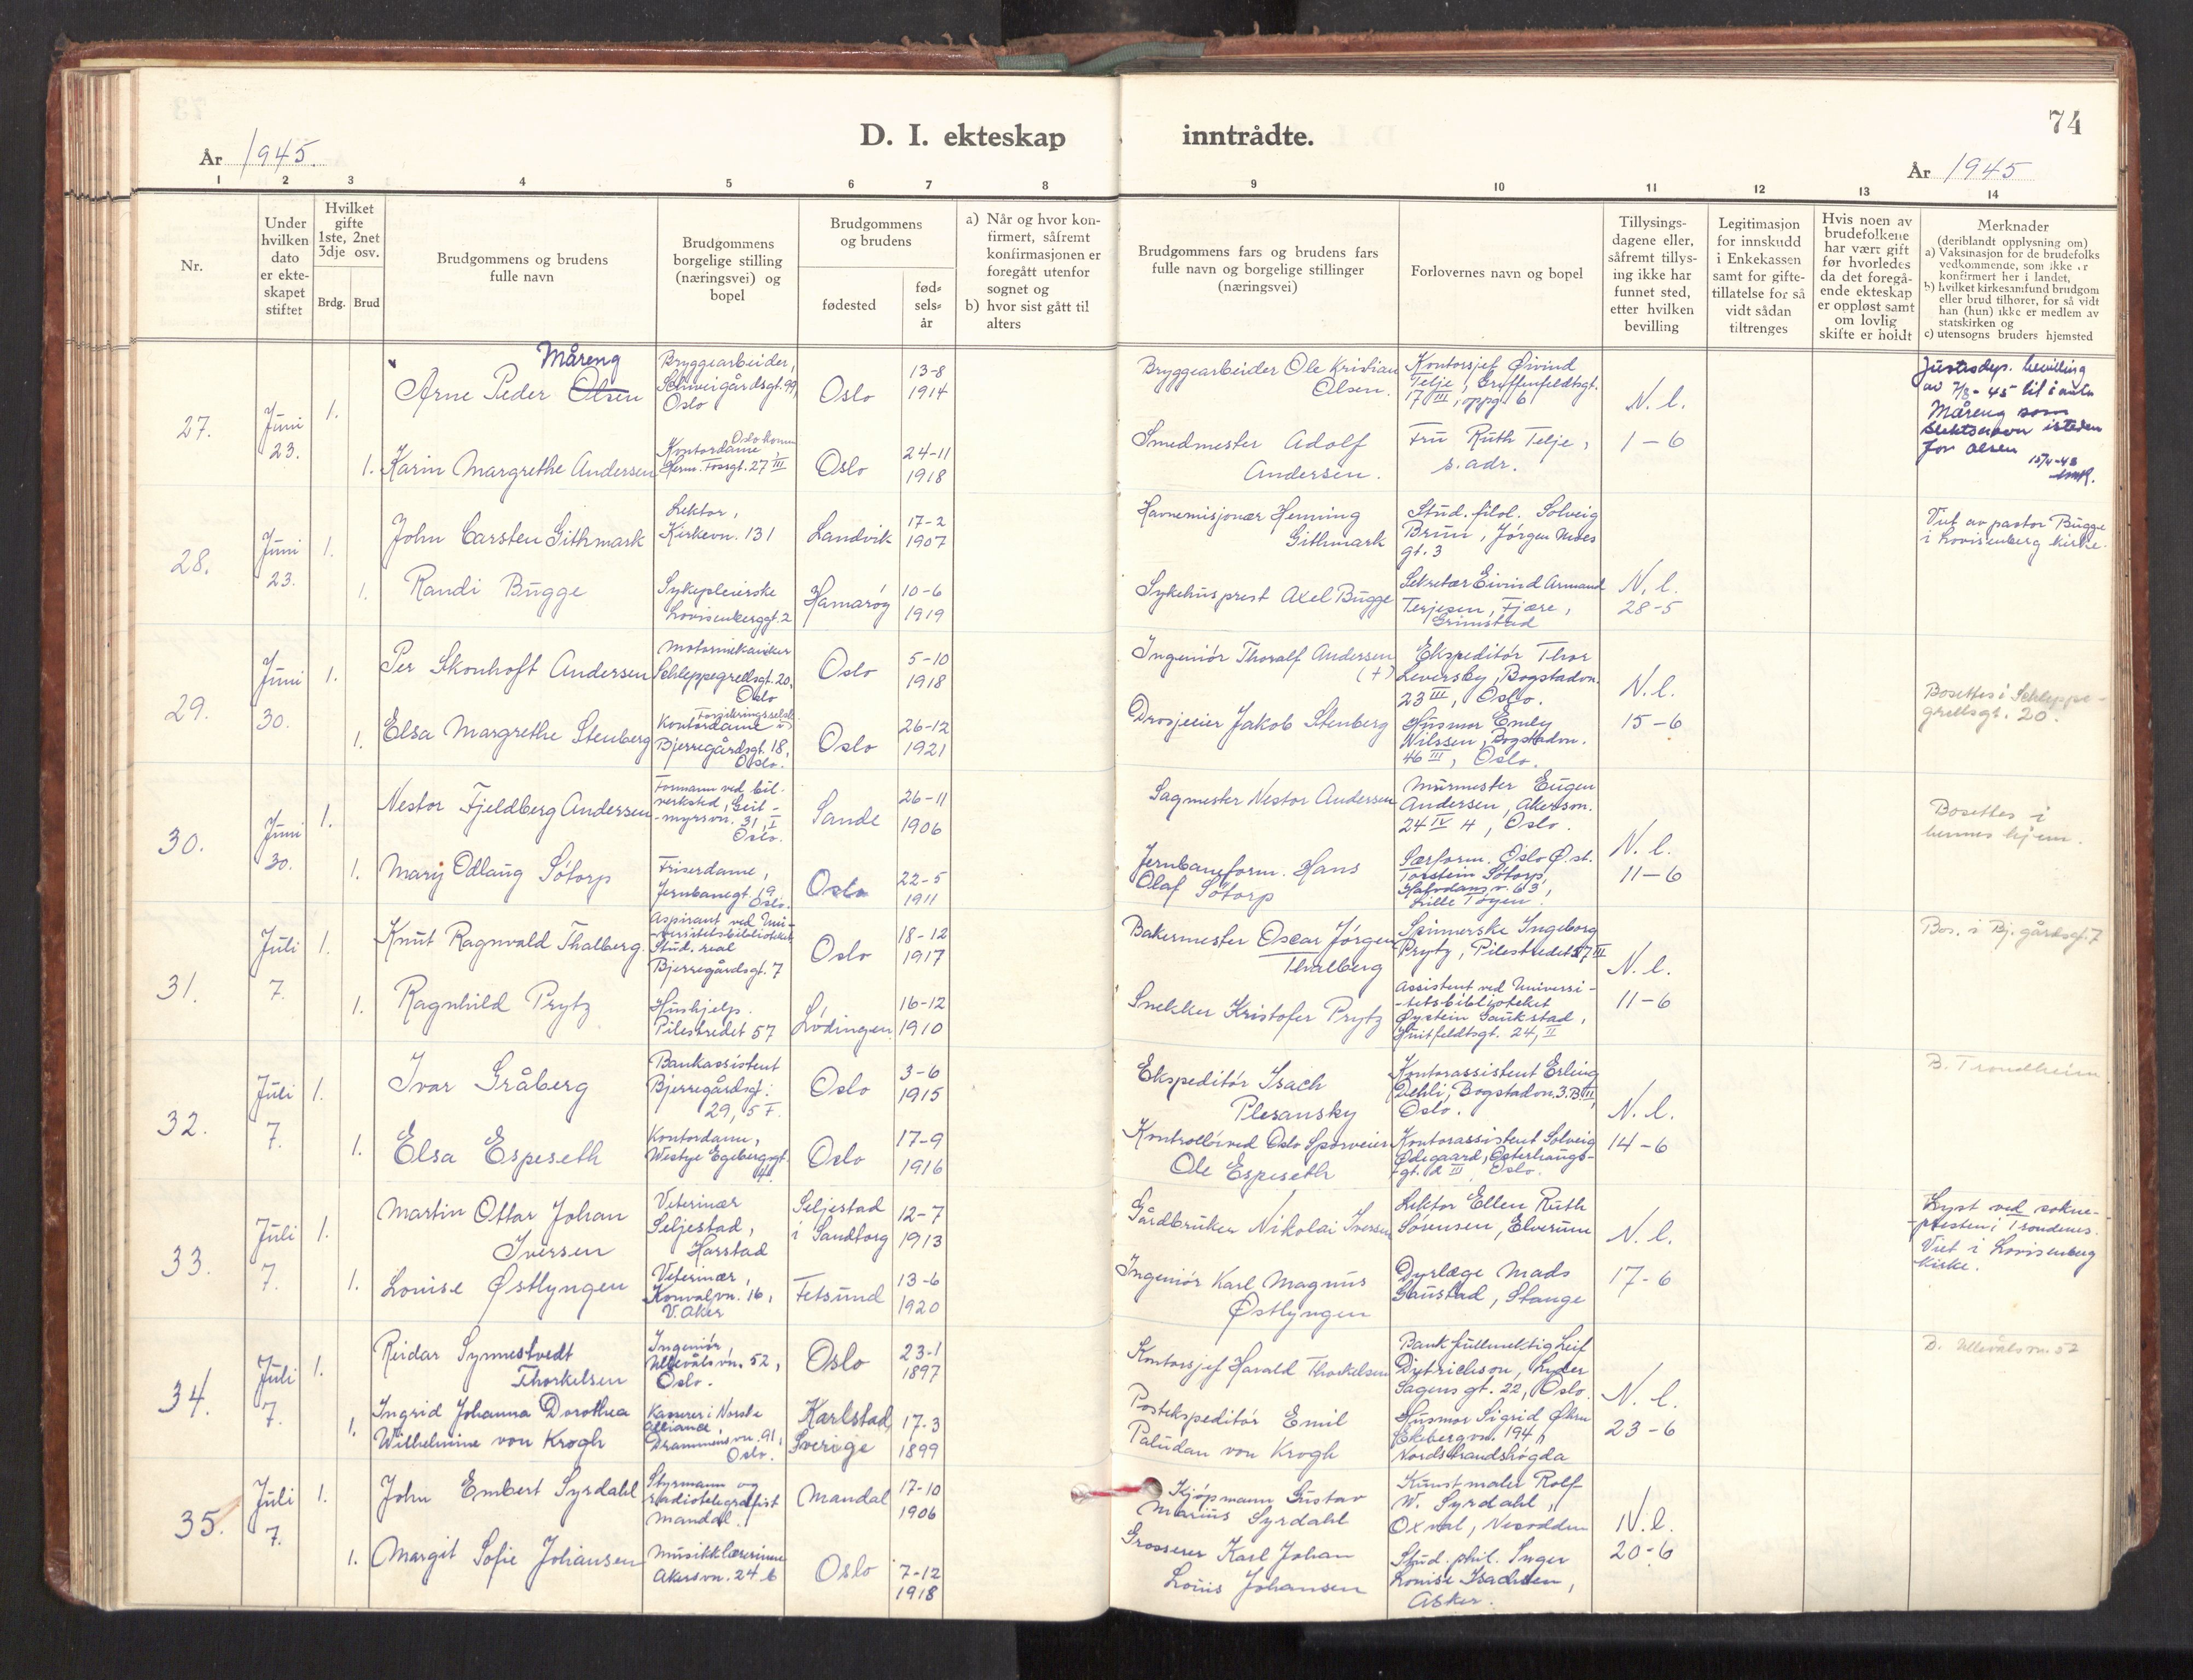 74
D. I. ekteskap inntrådte.
År 1945.
År 1945
1 2 3 4 5 6 7 8 9 10 11 12 13 14
Nr.
Under
hvilken
dato
er ekte-
skapet
stiftet
Hvilket
gifte
1ste, 2net
3dje osv.
Brdg. Brud
Brudgommens og brudens
fulle navn
Brudgommens
borgelige stilling
(næringsvei) og
bopel
Brudgommens
og brudens
fødested
fød-
sels-
år
a) Når og hvor kon-
firmert, såfremt
konfirmasjonen er
foregått utenfor
sognet og
b) hvor sist gått til
alters
Brudgommens fars og brudens fars
fulle navn og borgelige stillinger
(næringsvei)
Forlovernes navn og bopel
Tillysings-
dagene eller,
såfremt tillys-
ing ikke har
funnet sted,
etter hvilken
bevilling
Legitimasjon
for innskudd
i Enkekassen
samt for gifte-
tillatelse for så
vidt sådan
tiltrenges
Hvis noen av
brudefolkene
har vært gift
før hvorledes
da det foregå-
ende ekteskap
er oppløst samt
om lovlig
skifte er holdt
Merknader
(deriblandt opplysning om)
a) Vaksinasjon for de brudefolks
vedkommende, som ikke er
konfirmert her i landet,
b) hvilket kirkesamfund brudgom
eller brud tilhører, for så vidt
han (hun) ikke er medlem av
statskirken og
c) utensogns bruders hjemsted
27.
Juni
23.
1.
Måreng
Arne Peder Olsen
Bryggearbeider,
Schweigårdsgt. 99,
Oslo
Oslo
13-8
1914
Bryggearbeider Ole Kristian
Olsen.
Kontorsjef Øivind
Telje, Gryffenfeldtsgt.
17 III, oppg. 6
N. l.
1-6
Justisdep. bevilling
av 7/8-45 til å anta
Måreng som
slektsnavn isteden
for Olsen
15/4-48
1.
Karin Margrethe Andersen
Kontordame, Oslo komm
Herm. Fossgt. 27 III
Oslo
24-11
1918
Smedmester Adolf
Andersen.
Fru Ruth Telje,
s. adr.
28.
Juni
23.
1.
John Carsten Githmark
Lektor,
Kirkevn. 131
Landvik
17-2
1907
Havnemisjonær Henning
Githmark
Stud. filol. Solveig
Brun, Jørgen Moes
gt. 3
N. l.
28-5
Viet av pastor Bugge
i Lovisenberg kirke.
1.
Randi Bugge
Sykepleierske
Lovisenberggt. 2
Hamarøy
10-6
1919
Sykehusprest Axel Bugge
Sekretær Eivind Armand
Terjesen, Fjære,
Grimstad
29.
Juni
30.
1.
Per Skonhoft Andersen
Motormekaniker
Schleppegrellsgt. 20,
Oslo
Oslo
5-10
1918
Ingeniør Thoralf Andersen
(+)
Ekspeditør Thor
Leversby, Bogstadvn.
23 III, Oslo.
N. l.
15-6
Bosettes i Schleppe-
grellsgt. 20.
1.
Elsa Margrethe Stenberg
Kontordame
Bjerregårdsgt. 18,
Oslo.
Oslo
26-12
1921
Drosjeeier Jakob Stenberg
Husmor Emily
Nilssen, Bogstadvn.
46 III, Oslo.
30.
Juni
30.
1.
Nestor Fjeldberg Andersen
Formann ved bil-
verksted, Geit-
-myrsvn. 31, I
Oslo.
Sande
26-11
1906
Sagmester Nestor Andersen
Murmester Eugen
Andersen, Akersvn.
24 IV 4, Oslo.
N. l.
11-6
Bosettes i
hennes hjem.
1.
Mary Odlaug Søtorp
Friserdame,
Jernbanegt. 19,
Oslo.
Oslo
22-5
1911
Jernbaneform. Hans
Olaf Søtorp
Særform. Oslo Ø. st.
Torstein Søtorp,
Halvdans v. 63,
Lille Tøyen.
31.
Juli
7.
1.
Knut Ragnvald Thalberg.
Aspirant ved Uni-
-versitetsbiblioteket
Stud. real
Bjerregårdsgt. 7
Oslo
18-12
1917
Bakermester Oscar Jørgen
Thalberg
Spinnerske Ingeborg
Prytz, Pilestredet 57 III
N. l.
11-6
Bos. i Bj. gårdsgt. 7
1.
Ragnhild Prytz
Hushjelp.
Pilestredet 57
Lødingen
16-12
1910
Snekker Kristofer Prytz
Assistent ved Universi-
-tetsbiblioteket
Øystein Gaukstad,
Huitfeldtsgt. 24, II
32.
Juli
7.
1.
Ivar Gråberg
Bankassistent
Bjerregårdsgt.
29, 5 F.
Oslo
3-6
1915
Ekspeditør Isach
Plesansky
Kontorassistent Erling
Dehli, Bogstadvn. 3. B III,
Oslo.
N. l.
14-6
B. Trondheim
1.
Elsa Espeseth
Kontordame,
Westye Egebergsgt.
4
Oslo
17-9
1916
Kontrollør ved Oslo Sporveier
Ole Espeseth
Kontorassistent Solveig
Ødegaard, Osterhaugs-
gt. 2 III Oslo.
33.
Juli
7.
1.
Martin Ottar Johan
Iversen
Veterinær
Seljestad,
Harstad
Seljestad
i Sandtorg
12-7
1913
Gårdbruker Nikolai Iversen
Lektor Ellen Ruth
Sørensen, Elverum
N. l.
17-6
Lyst ved sokne-
-presten i Trondenes.
Viet i Lovisenberg
kirke.
1.
Louise Østlyngen
Veterinær,
Konvalvn. 16,
V. Aker
Fetsund
13-6
1920
Ingeniør Karl Magnus
Østlyngen
Dyrlæge Mads
Gaustad, Stange
34.
Juli
7.
1.
Reidar Synnestvedt
Thorkelsen
Ingeniør,
Ullevålsvn. 52,
Oslo.
Oslo
23-1
1897
Kontorsjef Harald Thorkelsen
Bankfullmektig Leif
Dietrichson, Lyder
Sagens gt. 22, Oslo.
N. l.
23-6
B. Ullevålsvn. 52
1.
Ingrid Johanna Dorothea
Wilhelmine von Krogh
Kasserer i Norske
Alliance,
Drammensvn. 91,
Oslo.
Karlstad,
Sverige
17-3
1899
Postekspeditør Emil
Paludan von Krogh
Husmor Sigrid Øhrn
Ekebergvn. 194
Nordstrandshøgda
35.
Juli
7.
1.
John Embert Syrdahl
Styrmann og
radiotelegrafist
Mandal.
Mandal
17-10
1906
Kjøpmann Gustav
Marius Syrdahl
Kunstmaler Rolf
W. Syrdahl,
Oxval, Nesodden
N. l.
20-6
1.
Margit Sofie Johansen
Musikklærerinne
Akersvn. 24 b
Oslo
7-12
1918
Grosserer Karl Johan
Louis Johansen
Stud. phil. Inger
Louise Isachsen,
Asker.